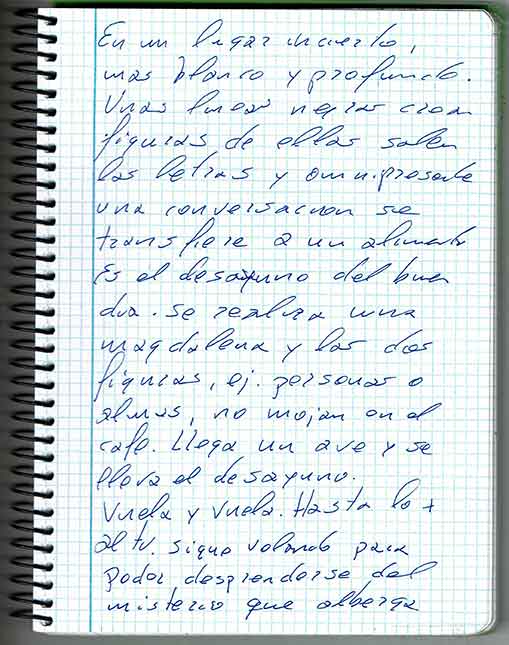 En un lugar incierto,
mas blanco y profundo.
Unas lineas negras crean
figuras de ellas salen
las letras y omnipresente
una conversacion se
transfiere a un alimento
Es el desayuno del buen
dia. Se realiza una
magdalena y las dos
figuras, ej. personas o
almas, no mojan en el
cafe. Llega un ave y se
lleva el desayuno.
Vuela y Vuela. Hasta lo +
alto. sigue volando para
poder desprenderse del
misterio que alberga